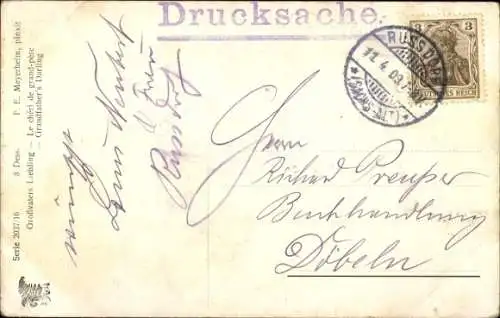 Drucksache.
RUSSDORF
11.4.09.
3
DEUTSCHES REICH
Herrn
Richard Preußer
Buchhandlung
Döbeln
Louis
u. Frau
Russdorf
Serie 2037/16 8 Dess. P. E. Meyerheim, pinxit
Großvaters Liebling — Le chéri de grand-père
Grandfather's Darling